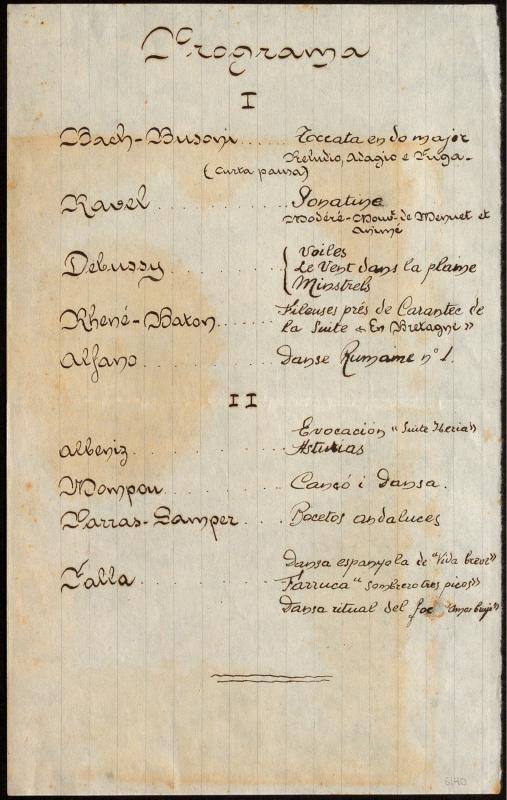 Programa
I
Bach-Busoni .... Toccata en do major
Preludio, Adagio e Fuga-
(curta pausa)
Ravel ........... Sonatine
Modéré-Mouvt. de Menuet et
Animé
Debussy ......... Voiles
Le Vent dans la plaine
Minstrels
Rhené-Baton ..... Fileuses prés de Carantec de
la Suite "En Bretagne"
Alfano .......... Danse Rumaine nº 1.
II
Evocación "Suite Iberia"
Albeniz ......... Asturias
Mompou .......... Cançó i dansa.
Parras-Samper .... Bocetos andaluces
Dansa espanyola de "Vida breve"
Falla ........... Farruca "Sombrero tres picos"
Dansa ritual del foc "Amor brujo"
6140